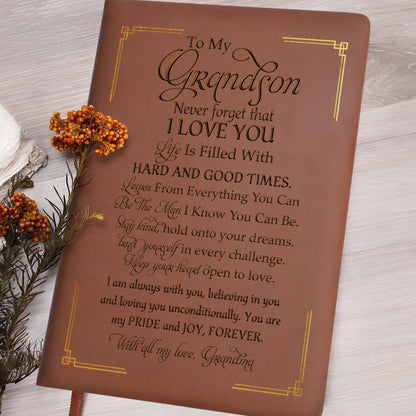 To My
Grandson
Never forget that
I LOVE YOU
Life Is Filled With
HARD AND GOOD TIMES.
Learn From Everything You Can
Be The Man I Know You Can Be.
Stay kind, hold onto your dreams.
trust yourself in every challenge.
Keep your heart open to love.
I am always with you, believing in you
and loving you unconditionally. You are
my PRIDE and JOY, FOREVER.
With all my love, Grandma